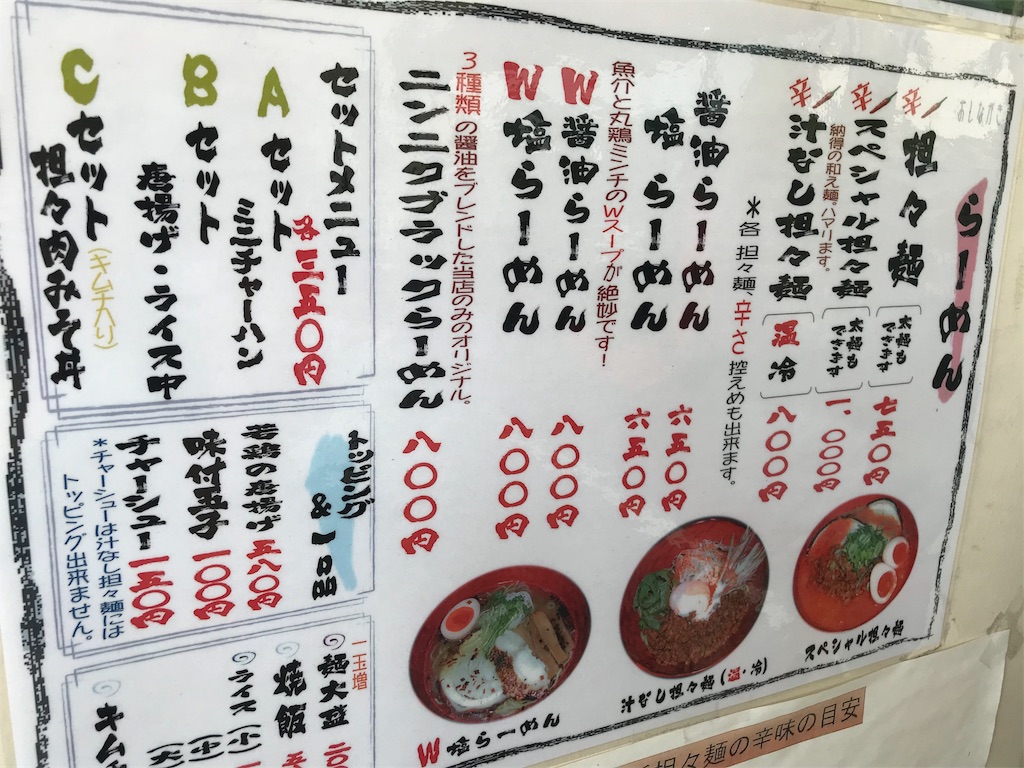 おしながき
らーめん
担々麺
太麺もできます
七五〇円
スペシャル担々麺
太麺もできます
一、〇〇〇円
納得の和え麺。ハマります。
汁なし担々麺
温 冷
八〇〇円
*各 担々麺、辛さ 控えめも出来ます。
醤油らーめん 六五〇円
塩らーめん 六五〇円
魚介と丸鶏ミンチのWスープが絶妙です!
W醤油らーめん 八〇〇円
W塩らーめん 八〇〇円
3種類の醤油をブレンドした当店のみのオリジナル。
ニンニクブラックらーめん 八〇〇円
スペシャル担々麺
汁なし担々麺(温・冷)
W塩らーめん
セットメニュー
各三五〇円
Aセット
ミニチャーハン
Bセット
唐揚げ・ライス中
Cセット(キムチ入り)
担々肉みそ丼
トッピング
&一品
若鶏の唐揚げ 五八〇円
味付玉子 一〇〇円
チャーシュー 一五〇円
*チャーシューは汁なし担々麺には
トッピング出来ません。
一玉増
麺大盛
焼飯
ライス(小)
(中)
(大)
担々麺の辛味の目安